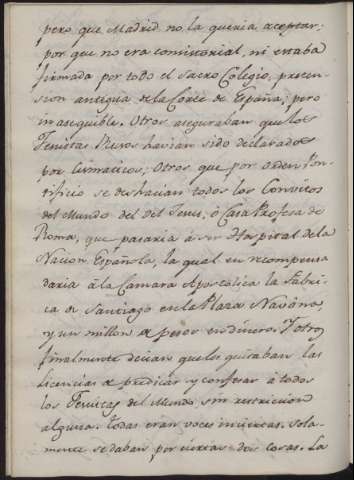 pero que Madrid no la queria aceptar;
por que no era consistorial, ni estaba
firmada por todo el Sacro Colegio, preten-
sion antigua de la Corte de España; pero
inasequible. Otros aseguraban que los
Jesuitas Rusos havian sido declarados
por Cismaticos; Otros que por orden Pon-
tificio se deshacian todos los Convitos
del Mundo del del Jesus, ó Casa Profesa de
Roma, que pasaria á ser Hospital de la
Nacion Española, la qual en recompensa
daria á la Camara Apostolica la Fabri-
ca de Santiago en la Plaza Navona,
y un millon de pesos en dinero: Y otros
finalmente decian que les quitaban las
licencias de predicar y confesar á todos
los Jesuitas del Mundo sin restriccion
alguna. todas eran voces inciertas. Sola-
mente se daban por ciertas dos cosas. La